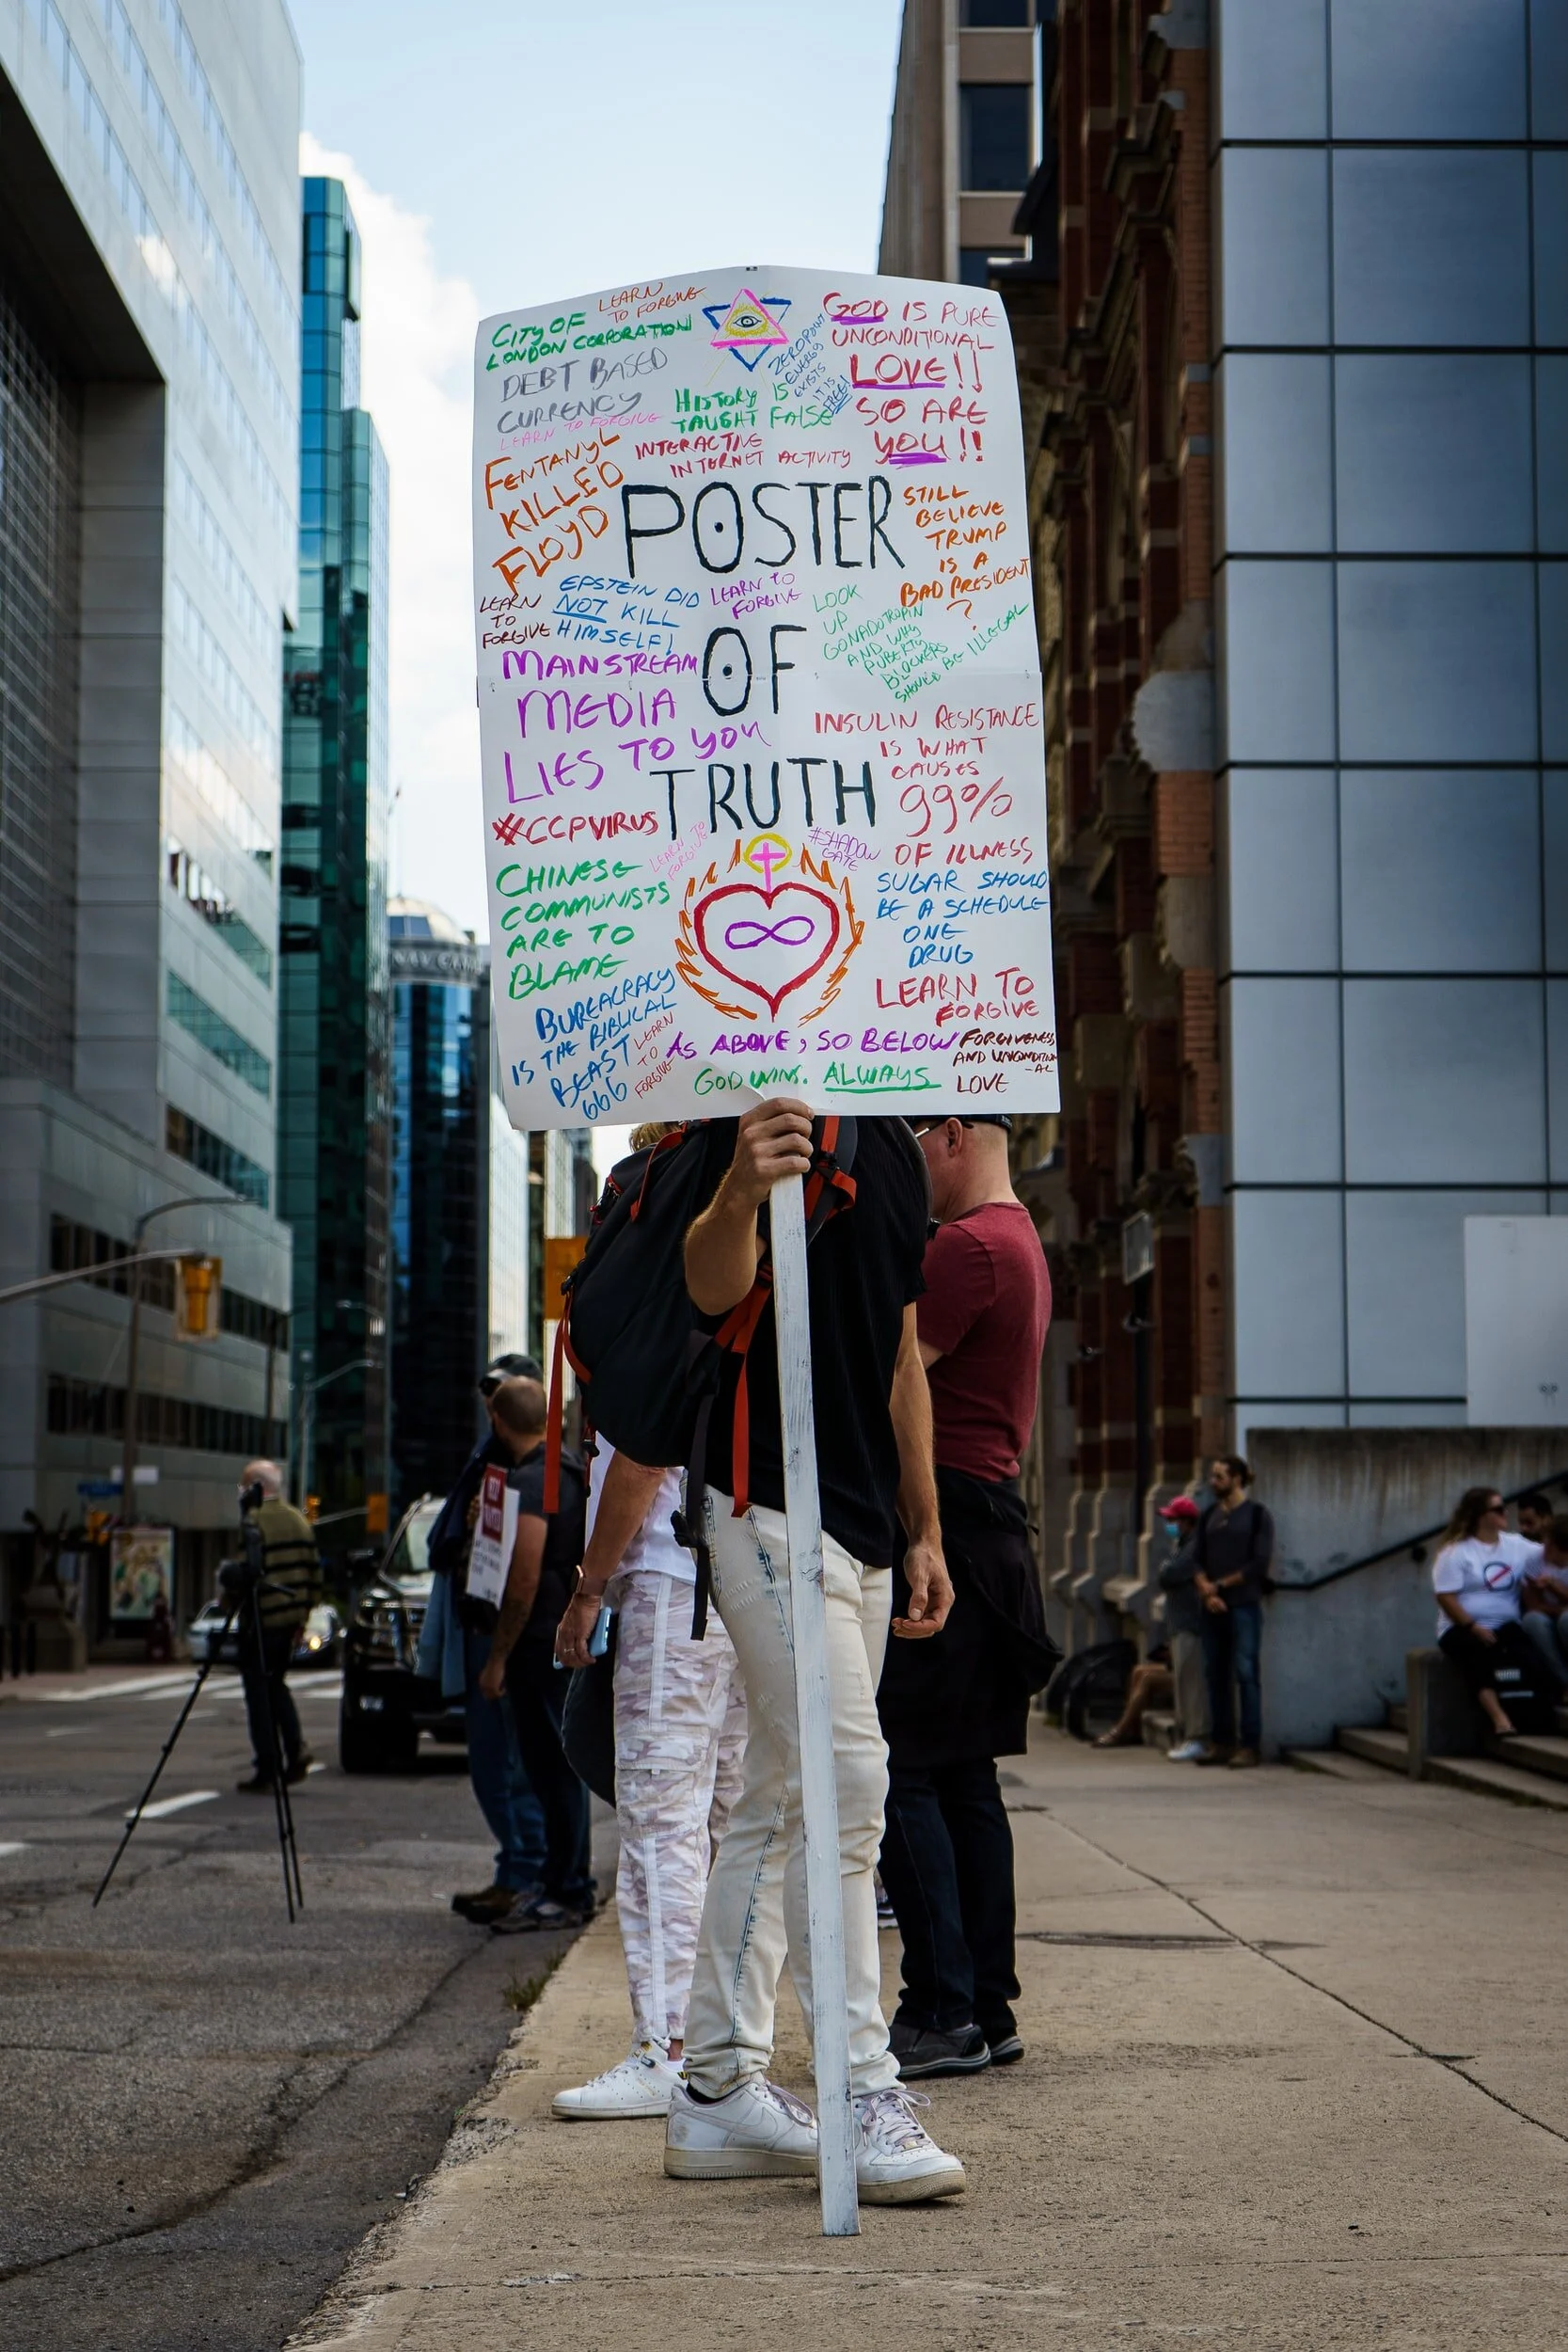 LEARN
TO FORGIVE
CITY OF
LONDON CORPORATION
DEBT BASED
CURRENCY
LEARN TO FORGIVE
ZEROPOINT
ENERGY
EXISTS
IT IS
FREE!
GOD IS PURE
UNCONDITIONAL
LOVE!!
SO ARE
YOU!!
HISTORY IS
TAUGHT FALSE
INTERACTIVE
INTERNET ACTIVITY
FENTANYL
KILLED
FLOYD
POSTER
OF
TRUTH
STILL
BELIEVE
TRUMP
IS A
BAD PRESIDENT
?
LEARN
TO
FORGIVE
EPSTEIN DID
NOT KILL
HIMSELF!
LEARN TO
FORGIVE
LOOK
UP
GONADOTROPIN
AND WHY
PUBERTY
BLOCKERS
SHOULD BE ILLEGAL
MAINSTREAM
MEDIA
LIES TO YOU
INSULIN RESISTANCE
IS WHAT
CAUSES
99%
OF ILLNESS
#CCPVIRUS
LEARN TO
FORGIVE
#SHADOW
GATE
CHINESE
COMMUNISTS
ARE TO
BLAME
SUGAR SHOULD
BE A SCHEDULE
ONE
DRUG
LEARN TO
FORGIVE
BUREAUCRACY
IS THE BIBLICAL
BEAST
666
LEARN
TO
FORGIVE
AS ABOVE, SO BELOW
GOD WINS. ALWAYS
FORGIVENESS
AND
LOVE